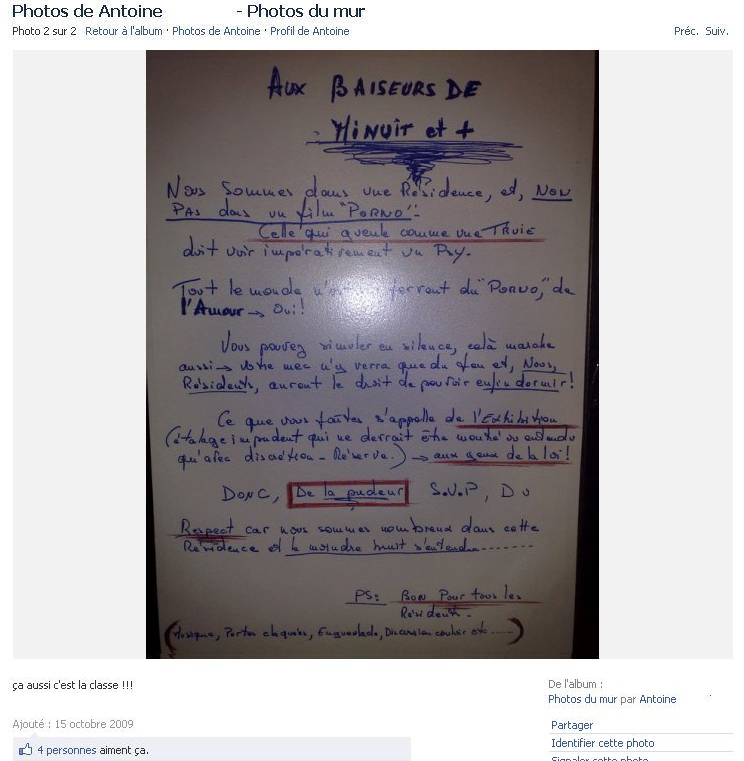 Photos de Antoine - Photos du mur
Photo 2 sur 2 Retour à l'album · Photos de Antoine · Profil de Antoine
Préc. Suiv.
AUX BAISEURS DE
MINUIT et +
Nous Sommes dans une Résidence, et, NON
PAS dans un film "PORNO".
Celle qui gueule comme une TRUIE
doit voir impérativement un Psy.
Tout le monde fervent du "PORNO," de
l'Amour → Oui!
Vous pouvez simuler en silence, celà marche
aussi → Votre mec n'y verra que du feu et, Nous,
Résidents, auront le droit de pouvoir enfin dormir!
Ce que vous faîtes s'appelle de l'Exhibition
(étalage impudent qui ne devrait être montré ou entendu
qu'avec discrétion - Réserve.) → aux yeux de la loi!
DONC, De la pudeur S.V.P, Du
Respect car nous sommes nombreux dans cette
Résidence et le moindre bruit s'entend........
PS: BON Pour tous les
Résidents.
(Musique, Portes claquées, Engueulade, Discussion couloir etc.....)
ça aussi c'est la classe !!!
De l'album :
Photos du mur par Antoine
Ajouté : 15 octobre 2009
Partager
4 personnes aiment ça.
Identifier cette photo
Signaler cette photo